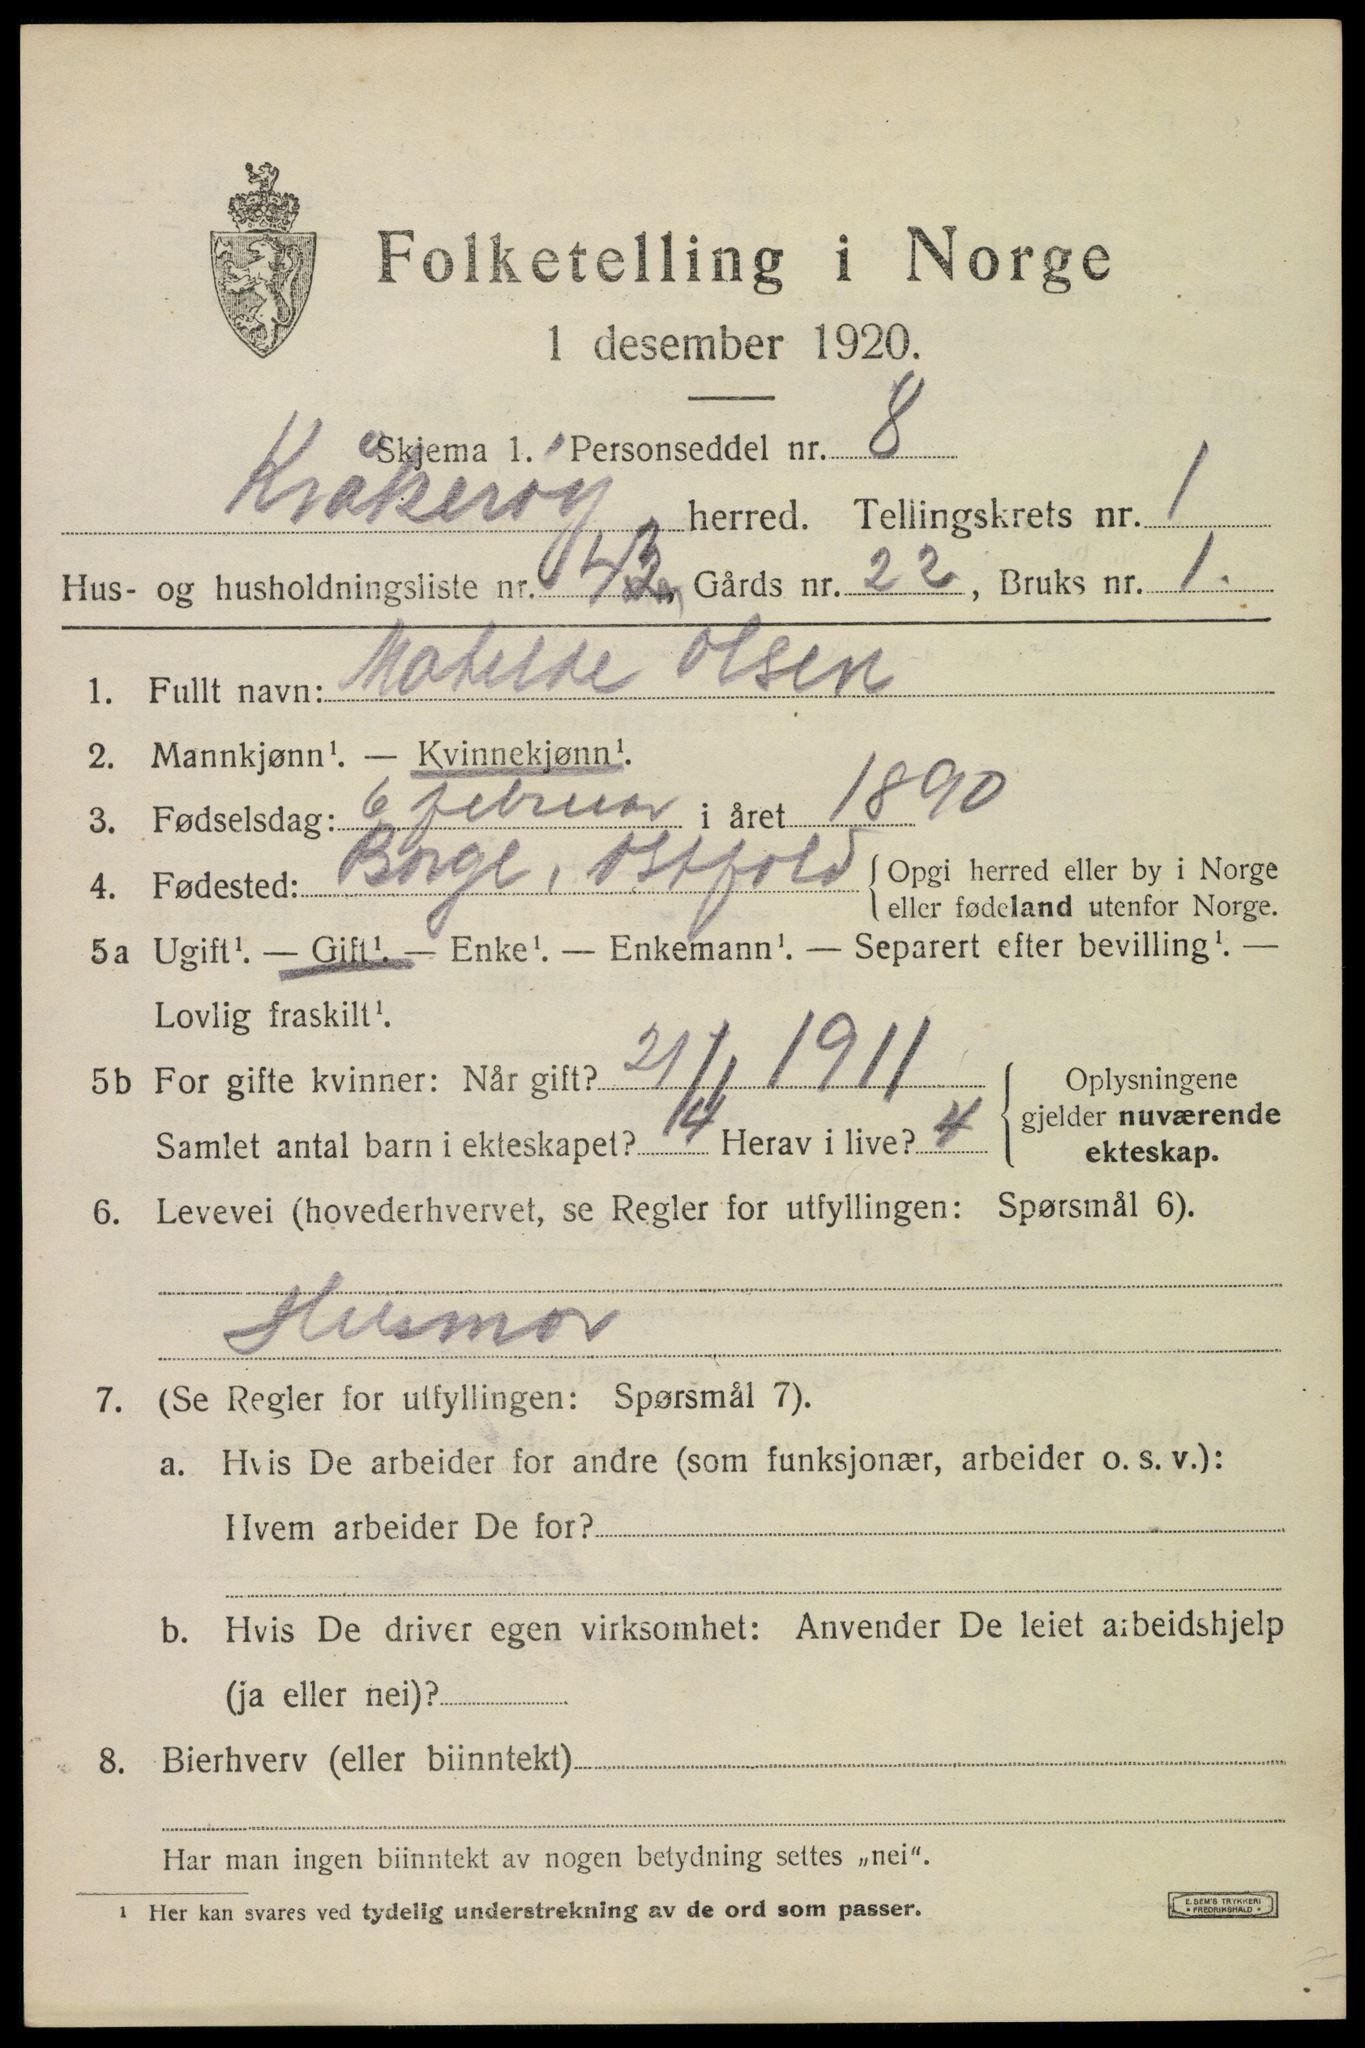 Folketelling i Norge
1 desember 1920.
Skjema 1. Personseddel nr. 8
Kråkerøy herred. Tellingskrets nr. 1
Hus- og husholdningsliste nr. 43, Gårds nr. 22, Bruks nr. 1.
1. Fullt navn: Matilde Olsen
2. Mannkjønn¹. — Kvinnekjønn¹.
3. Fødselsdag: 6 februar i året 1890
4. Fødested: Borge, Østfold { Opgi herred eller by i Norge
eller fødeland utenfor Norge.
5a Ugift¹. — Gift¹. — Enke¹. — Enkemann¹. — Separert efter bevilling¹. —
Lovlig fraskilt¹.
5b For gifte kvinner: Når gift? 21/1 1911 { Oplysningene
gjelder nuværende
Samlet antal barn i ekteskapet? 4 Herav i live? 4 ekteskap.
6. Levevei (hovederhvervet, se Regler for utfyllingen: Spørsmål 6).
Husmor
7. (Se Regler for utfyllingen: Spørsmål 7).
a. Hvis De arbeider for andre (som funksjonær, arbeider o. s. v.):
Hvem arbeider De for?
b. Hvis De driver egen virksomhet: Anvender De leiet arbeidshjelp
(ja eller nei)?
8. Bierhverv (eller biinntekt)
Har man ingen biinntekt av nogen betydning settes „nei“.
¹ Her kan svares ved tydelig understrekning av de ord som passer.
E. SEM'S TRYKKERI
• FREDRIKSHALD •